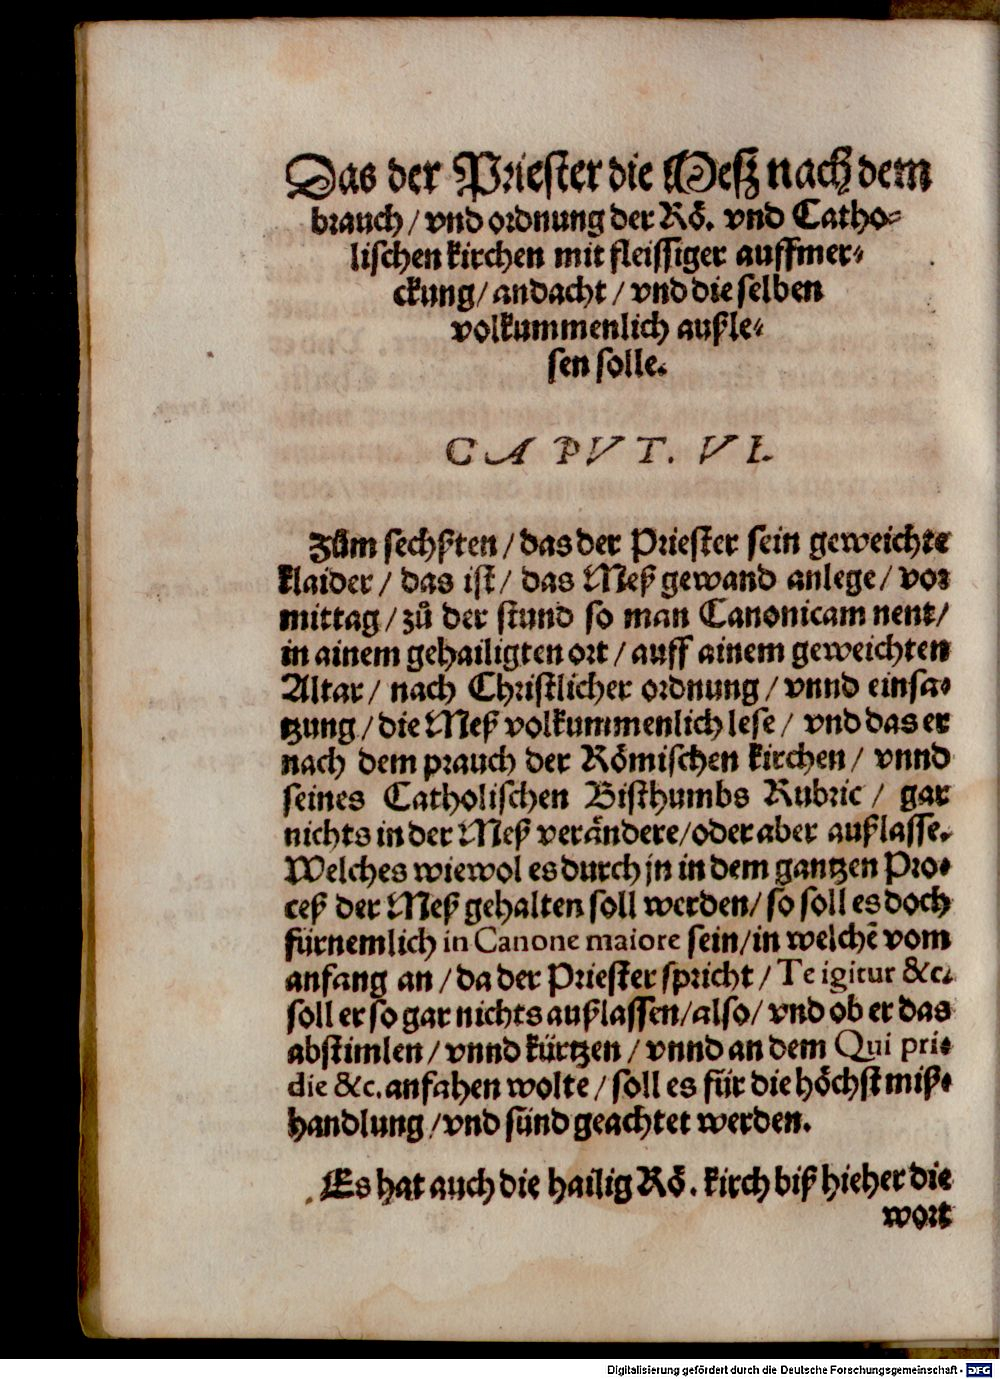 Das der Priester die Mesz nach dem
brauch / vnd ordnung der Rö. vnd Catho-
lischen kirchen mit fleissiger auffmer-
ckung / andacht / vnd die selben
volkummenlich außle-
sen solle.
CAPVT. VI.
Zům sechßten / das der Priester sein geweichte
klaider / das ist / das Meß gewand anlege / vor
mittag / zů der stund so man Canonicam nent /
in ainem gehailigten ort / auff ainem geweichten
Altar / nach Christlicher ordnung / vnnd einsa-
tzung / die Meß volkummenlich lese / vnd das er
nach dem prauch der Römischen kirchen / vnnd
seines Catholischen Bisthumbs Rubric / gar
nichts in der Meß verändere / oder aber außlasse.
Welches wiewol es durch jn in dem gantzen Pro-
ceß der Meß gehalten soll werden / so soll es doch
fürnemlich in Canone maiore sein / in welchē vom
anfang an / da der Priester spricht / Te igitur &c.
soll er so gar nichts außlassen / also / vnd ob er das
abstimlen / vnnd kürtzen / vnnd an dem Qui pri-
die &c. anfahen wolte / soll es für die höchst miß-
handlung / vnd sünd geachtet werden.
Es hat auch die hailig Rö. kirch biß hieher die
wort
Digitalisierung gefördert durch die Deutsche Forschungsgemeinschaft - DFG